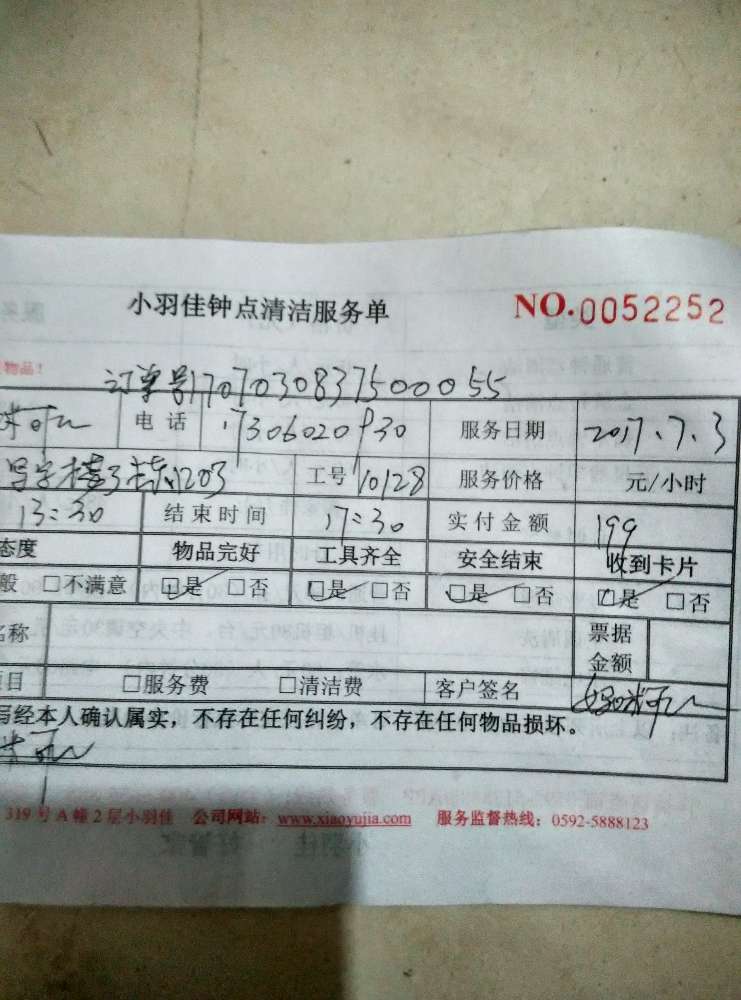 小羽佳钟点清洁服务单 NO.0052252
物品!
订单号17070308375000055
电话 17306020930 服务日期 2017.7.3
写字楼3栋1203 工号 10128 服务价格 元/小时
13:30 结束时间 17:30 实付金额 199
态度 物品完好 工具齐全 安全结束 收到卡片
般 □不满意 ☑是 □否 ☑是 □否 ☑是 □否 ☑是 □否
名称 票据金额
项目 □服务费 □清洁费 客户签名
写经本人确认属实，不存在任何纠纷，不存在任何物品损坏。
319号A幢2层小羽佳 公司网站：www.xiaoyujia.com 服务监督热线：0592-5888123